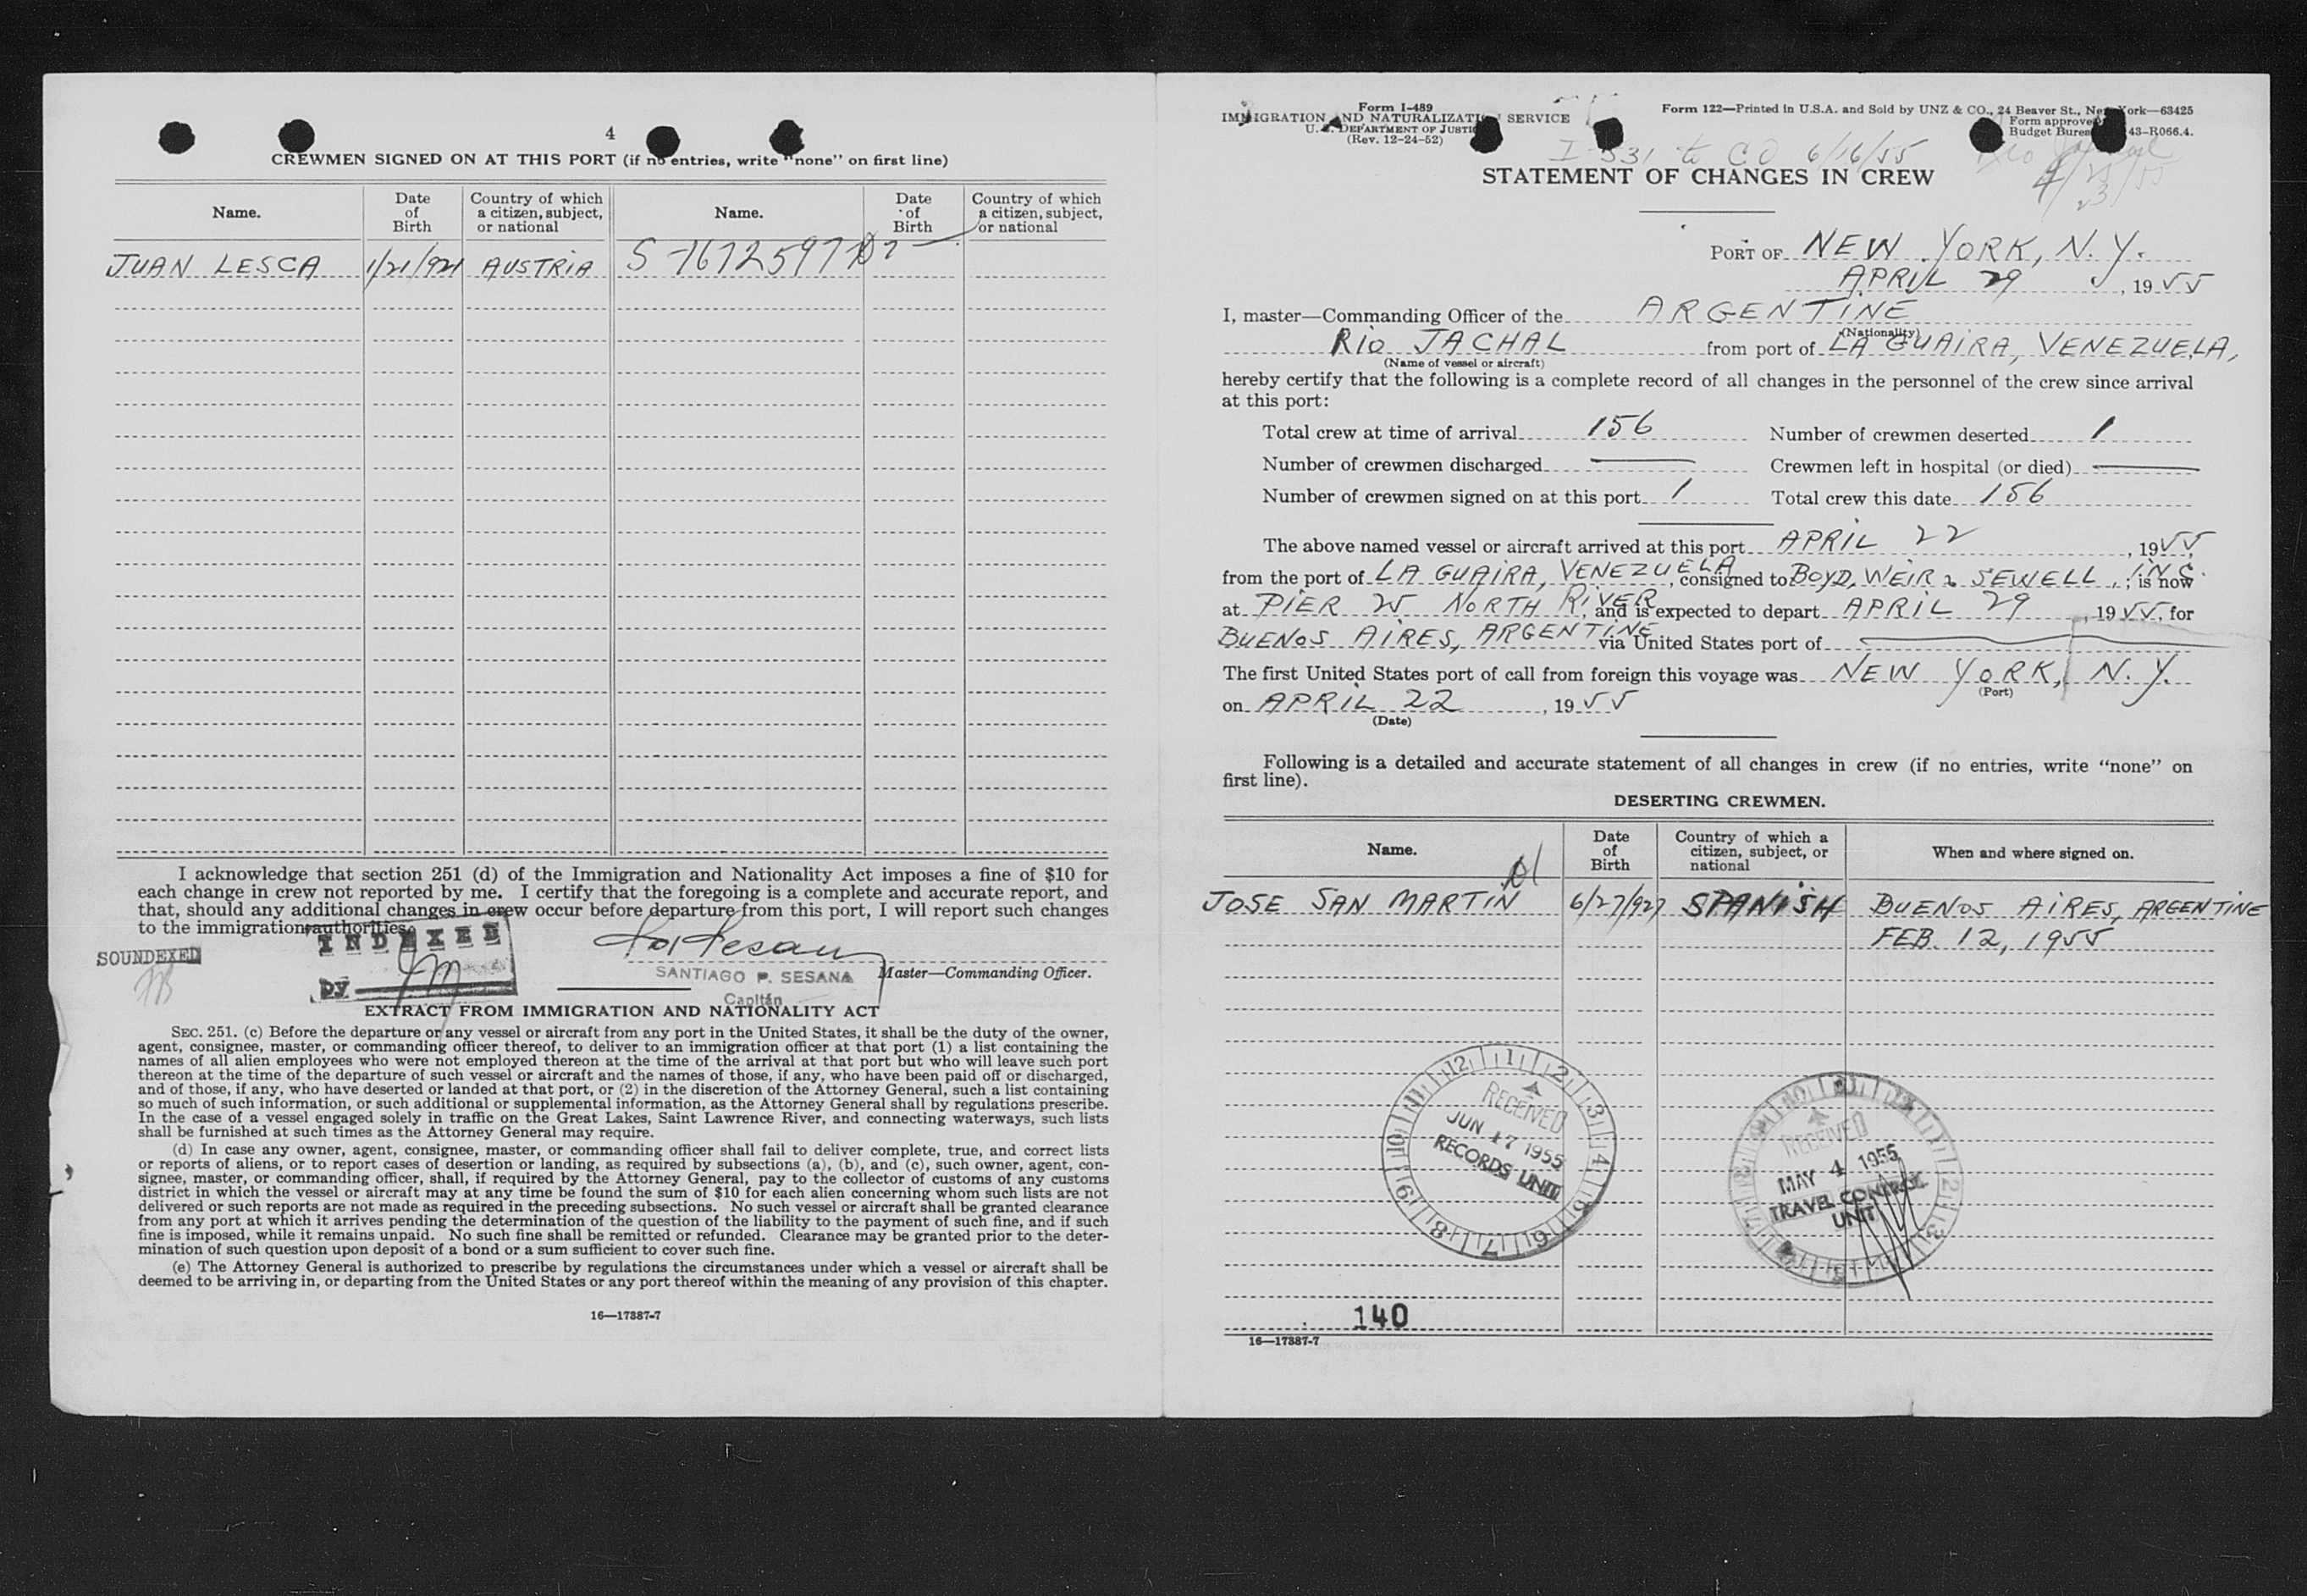 4
CREWMEN SIGNED ON AT THIS PORT (if no entries, write "none" on first line)
Name. Date of Birth Country of which a citizen, subject, or national Name. Date of Birth Country of which a citizen, subject, or national
JUAN LESCA 1/21/921 AUSTRIA
I acknowledge that section 251 (d) of the Immigration and Nationality Act imposes a fine of $10 for
each change in crew not reported by me. I certify that the foregoing is a complete and accurate report, and
that, should any additional changes in crew occur before departure from this port, I will report such changes
to the immigration authorities.
INDEXED
by
SOUNDEXED
SANTIAGO P. SESANA
Capitán
Master—Commanding Officer.
EXTRACT FROM IMMIGRATION AND NATIONALITY ACT
SEC. 251. (c) Before the departure or any vessel or aircraft from any port in the United States, it shall be the duty of the owner,
agent, consignee, master, or commanding officer thereof, to deliver to an immigration officer at that port (1) a list containing the
names of all alien employees who were not employed thereon at the time of the arrival at that port but who will leave such port
thereon at the time of the departure of such vessel or aircraft and the names of those, if any, who have been paid off or discharged,
and of those, if any, who have deserted or landed at that port, or (2) in the discretion of the Attorney General, such a list containing
so much of such information, or such additional or supplemental information, as the Attorney General shall by regulations prescribe.
In the case of a vessel engaged solely in traffic on the Great Lakes, Saint Lawrence River, and connecting waterways, such lists
shall be furnished at such times as the Attorney General may require.
(d) In case any owner, agent, consignee, master, or commanding officer shall fail to deliver complete, true, and correct lists
or reports of aliens, or to report cases of desertion or landing, as required by subsections (a), (b), and (c), such owner, agent, con-
signee, master, or commanding officer, shall, if required by the Attorney General, pay to the collector of customs of any customs
district in which the vessel or aircraft may at any time be found the sum of $10 for each alien concerning whom such lists are not
delivered or such reports are not made as required in the preceding subsections. No such vessel or aircraft shall be granted clearance
from any port at which it arrives pending the determination of the question of the liability to the payment of such fine, and if such
fine is imposed, while it remains unpaid. No such fine shall be remitted or refunded. Clearance may be granted prior to the deter-
mination of such question upon deposit of a bond or a sum sufficient to cover such fine.
(e) The Attorney General is authorized to prescribe by regulations the circumstances under which a vessel or aircraft shall be
deemed to be arriving in, or departing from the United States or any port thereof within the meaning of any provision of this chapter.
16—17387-7
Form I-489
IMMIGRATION AND NATURALIZATION SERVICE
U. S. DEPARTMENT OF JUSTICE
(Rev. 12-24-52)
Form 122—Printed in U.S.A. and Sold by UNZ & CO., 24 Beaver St., New York—63425
Form approved
Budget Bureau 43-R066.4.
I-531 to CO 6/16/55
STATEMENT OF CHANGES IN CREW
PORT OF NEW YORK, N.Y.
APRIL 29, 1955
I, master—Commanding Officer of the ARGENTINE
(Nationality)
Rio JACHAL from port of LA GUAIRA, VENEZUELA,
(Name of vessel or aircraft)
hereby certify that the following is a complete record of all changes in the personnel of the crew since arrival
at this port:
Total crew at time of arrival 156 Number of crewmen deserted 1
Number of crewmen discharged — Crewmen left in hospital (or died) —
Number of crewmen signed on at this port 1 Total crew this date 156
The above named vessel or aircraft arrived at this port APRIL 22, 1955,
from the port of LA GUAIRA, VENEZUELA, consigned to BOYD, WEIR & SEWELL, INC.; is now
at PIER 25 NORTH RIVER and is expected to depart APRIL 29, 1955, for
BUENOS AIRES, ARGENTINE via United States port of —
The first United States port of call from foreign this voyage was NEW YORK, N.Y.
(Port)
on APRIL 22, 1955
(Date)
Following is a detailed and accurate statement of all changes in crew (if no entries, write "none" on
first line).
DESERTING CREWMEN.
Name. Date of Birth Country of which a citizen, subject, or national When and where signed on.
JOSE SAN MARTIN 6/27/927 SPANISH BUENOS AIRES, ARGENTINE
FEB. 12, 1955
RECEIVED
JUN 17 1955
RECORDS UNIT
RECEIVED
MAY 4 1955
TRAVEL CONTROL
UNIT
140
16—17387-7